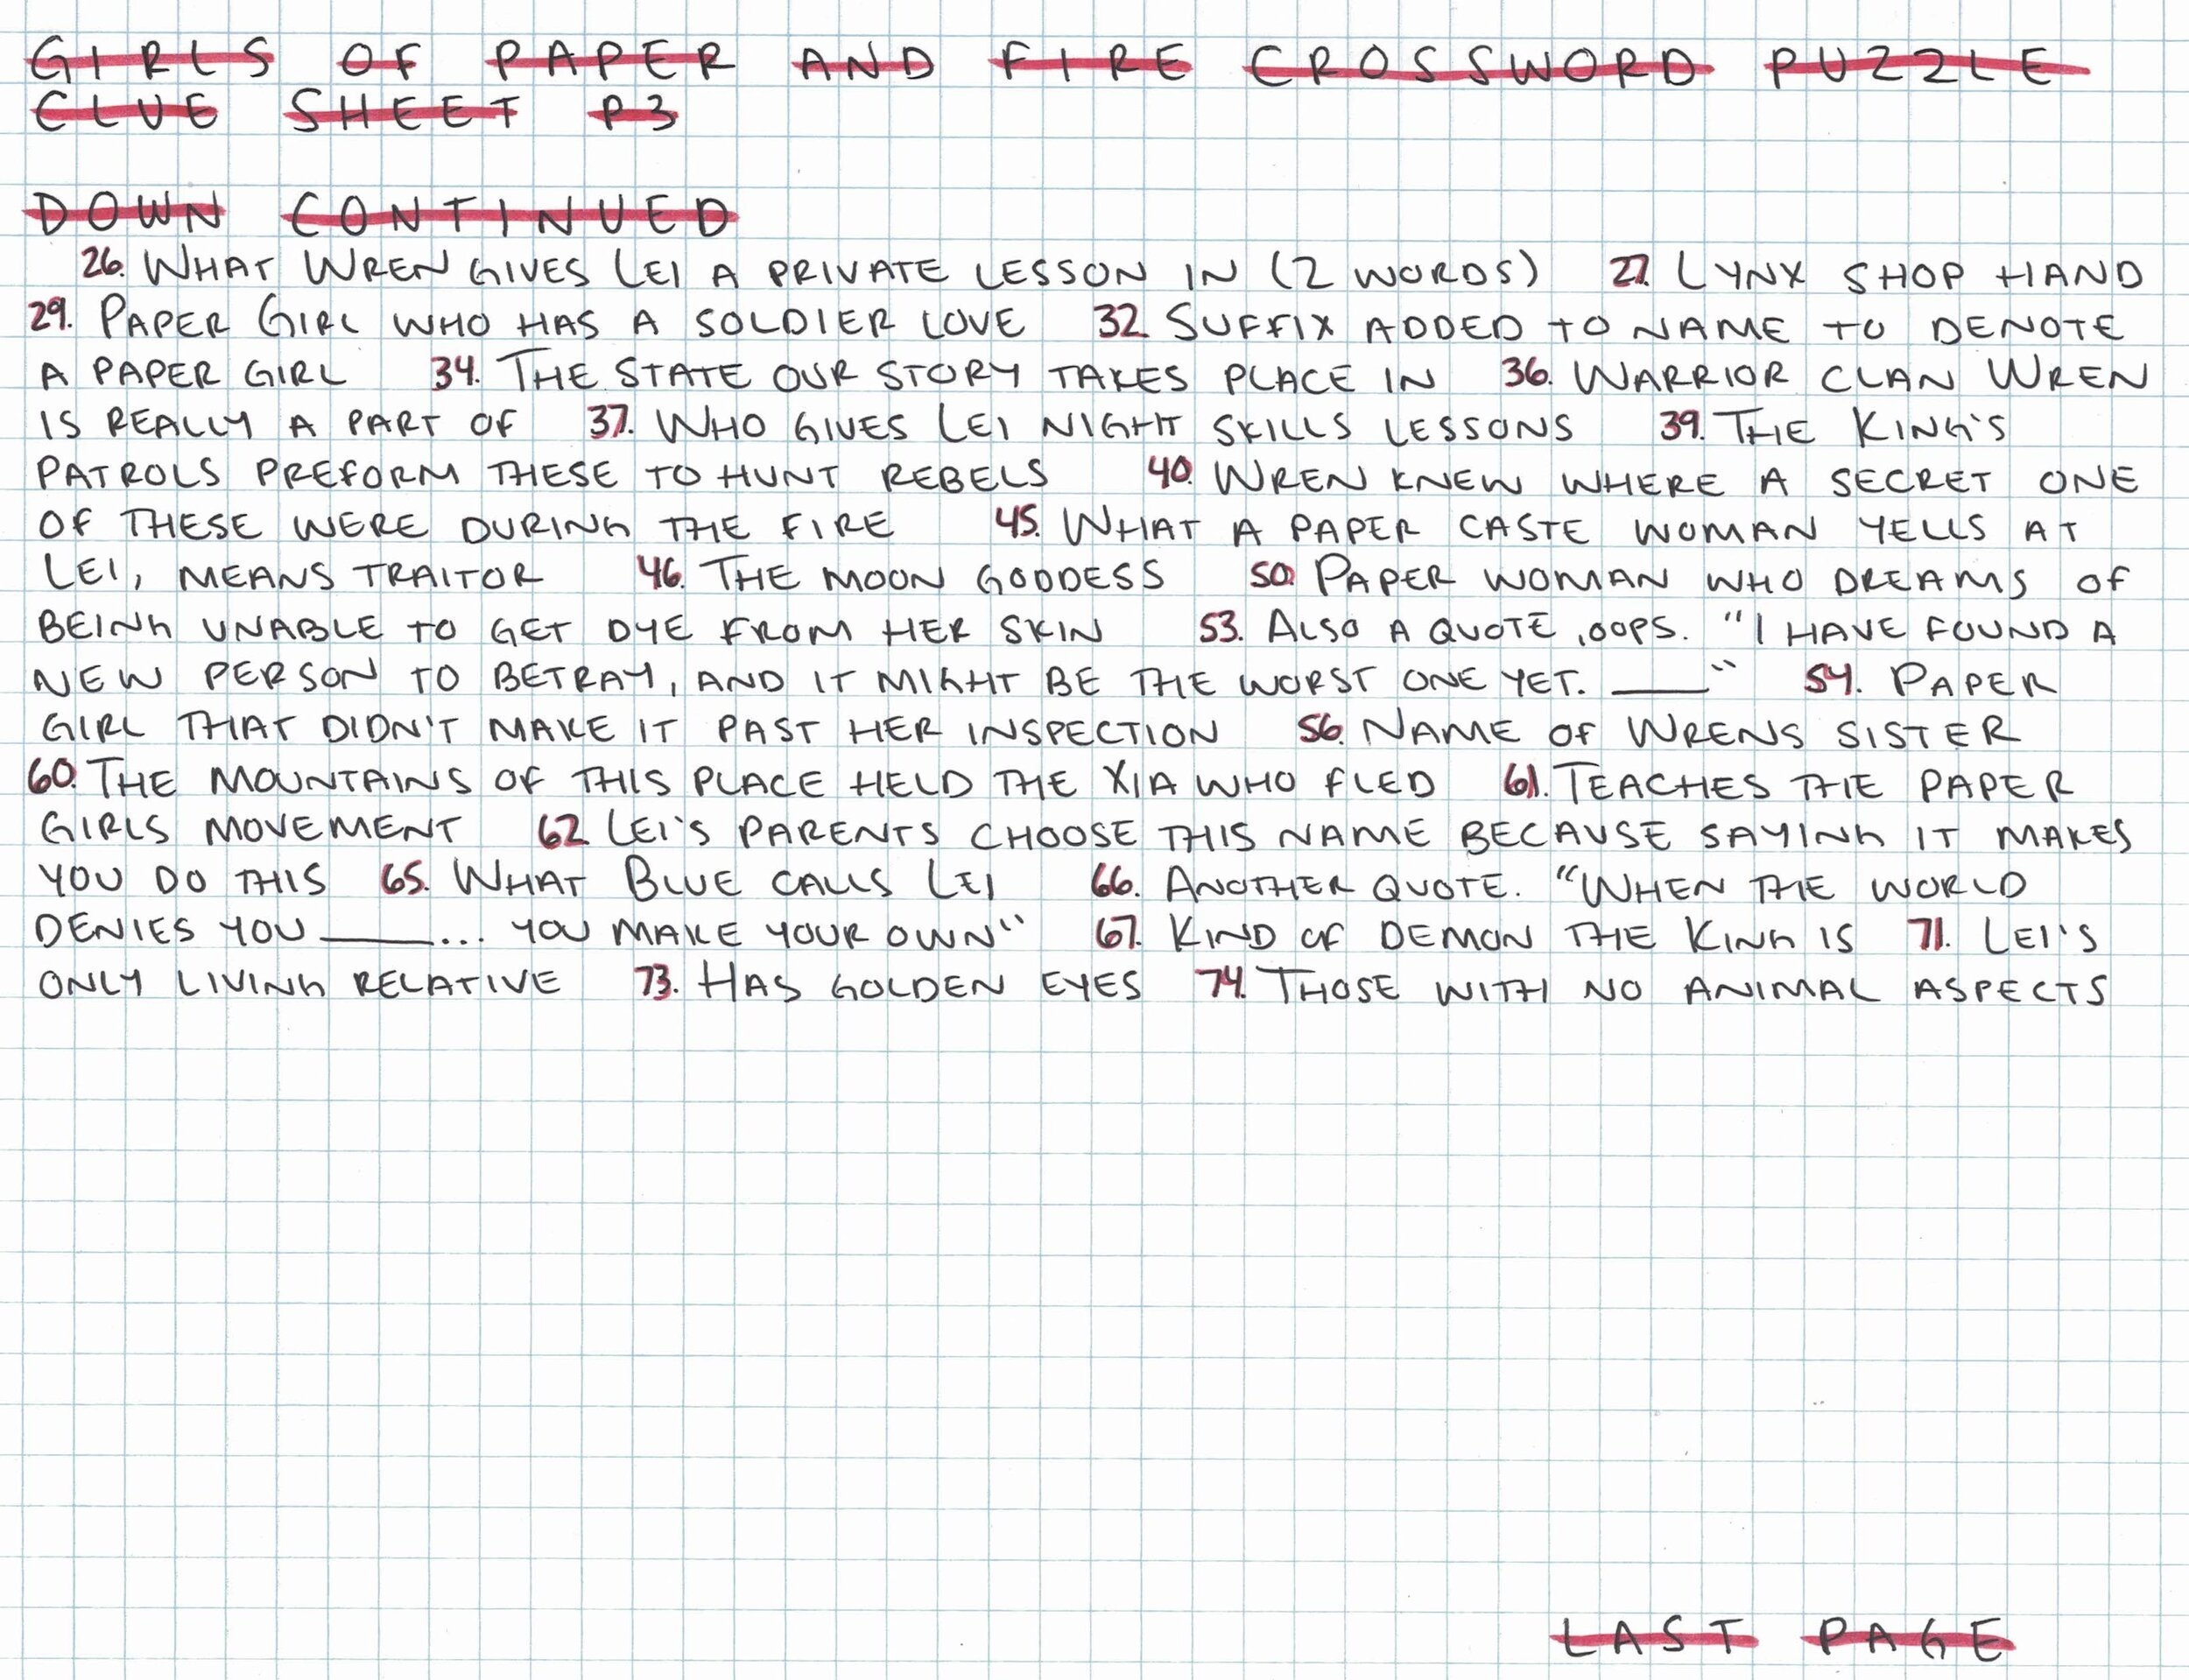 GIRLS OF PAPER AND FIRE CROSSWORD PUZZLE
CLUE SHEET P3
DOWN CONTINUED
26. WHAT WREN GIVES LEI A PRIVATE LESSON IN (2 WORDS) 27. LYNX SHOP HAND
29. PAPER GIRL WHO HAS A SOLDIER LOVE 32. SUFFIX ADDED TO NAME TO DENOTE
A PAPER GIRL 34. THE STATE OUR STORY TAKES PLACE IN 36. WARRIOR CLAN WREN
IS REALLY A PART OF 37. WHO GIVES LEI NIGHT SKILLS LESSONS 39. THE KING'S
PATROLS PREFORM THESE TO HUNT REBELS 40. WREN KNEW WHERE A SECRET ONE
OF THESE WERE DURING THE FIRE 45. WHAT A PAPER CASTE WOMAN YELLS AT
LEI, MEANS TRAITOR 46. THE MOON GODDESS 50. PAPER WOMAN WHO DREAMS OF
BEING UNABLE TO GET DYE FROM HER SKIN 53. ALSO A QUOTE, OOPS. "I HAVE FOUND A
NEW PERSON TO BETRAY, AND IT MIGHT BE THE WORST ONE YET. ____" 54. PAPER
GIRL THAT DIDN'T MAKE IT PAST HER INSPECTION 56. NAME OF WRENS SISTER
60. THE MOUNTAINS OF THIS PLACE HELD THE XIA WHO FLED 61. TEACHES THE PAPER
GIRLS MOVEMENT 62. LEI'S PARENTS CHOOSE THIS NAME BECAUSE SAYING IT MAKES
YOU DO THIS 65. WHAT BLUE CALLS LEI 66. ANOTHER QUOTE. "WHEN THE WORLD
DENIES YOU ____... YOU MAKE YOUR OWN" 67. KIND OF DEMON THE KING IS 71. LEI'S
ONLY LIVING RELATIVE 73. HAS GOLDEN EYES 74. THOSE WITH NO ANIMAL ASPECTS
LAST PAGE